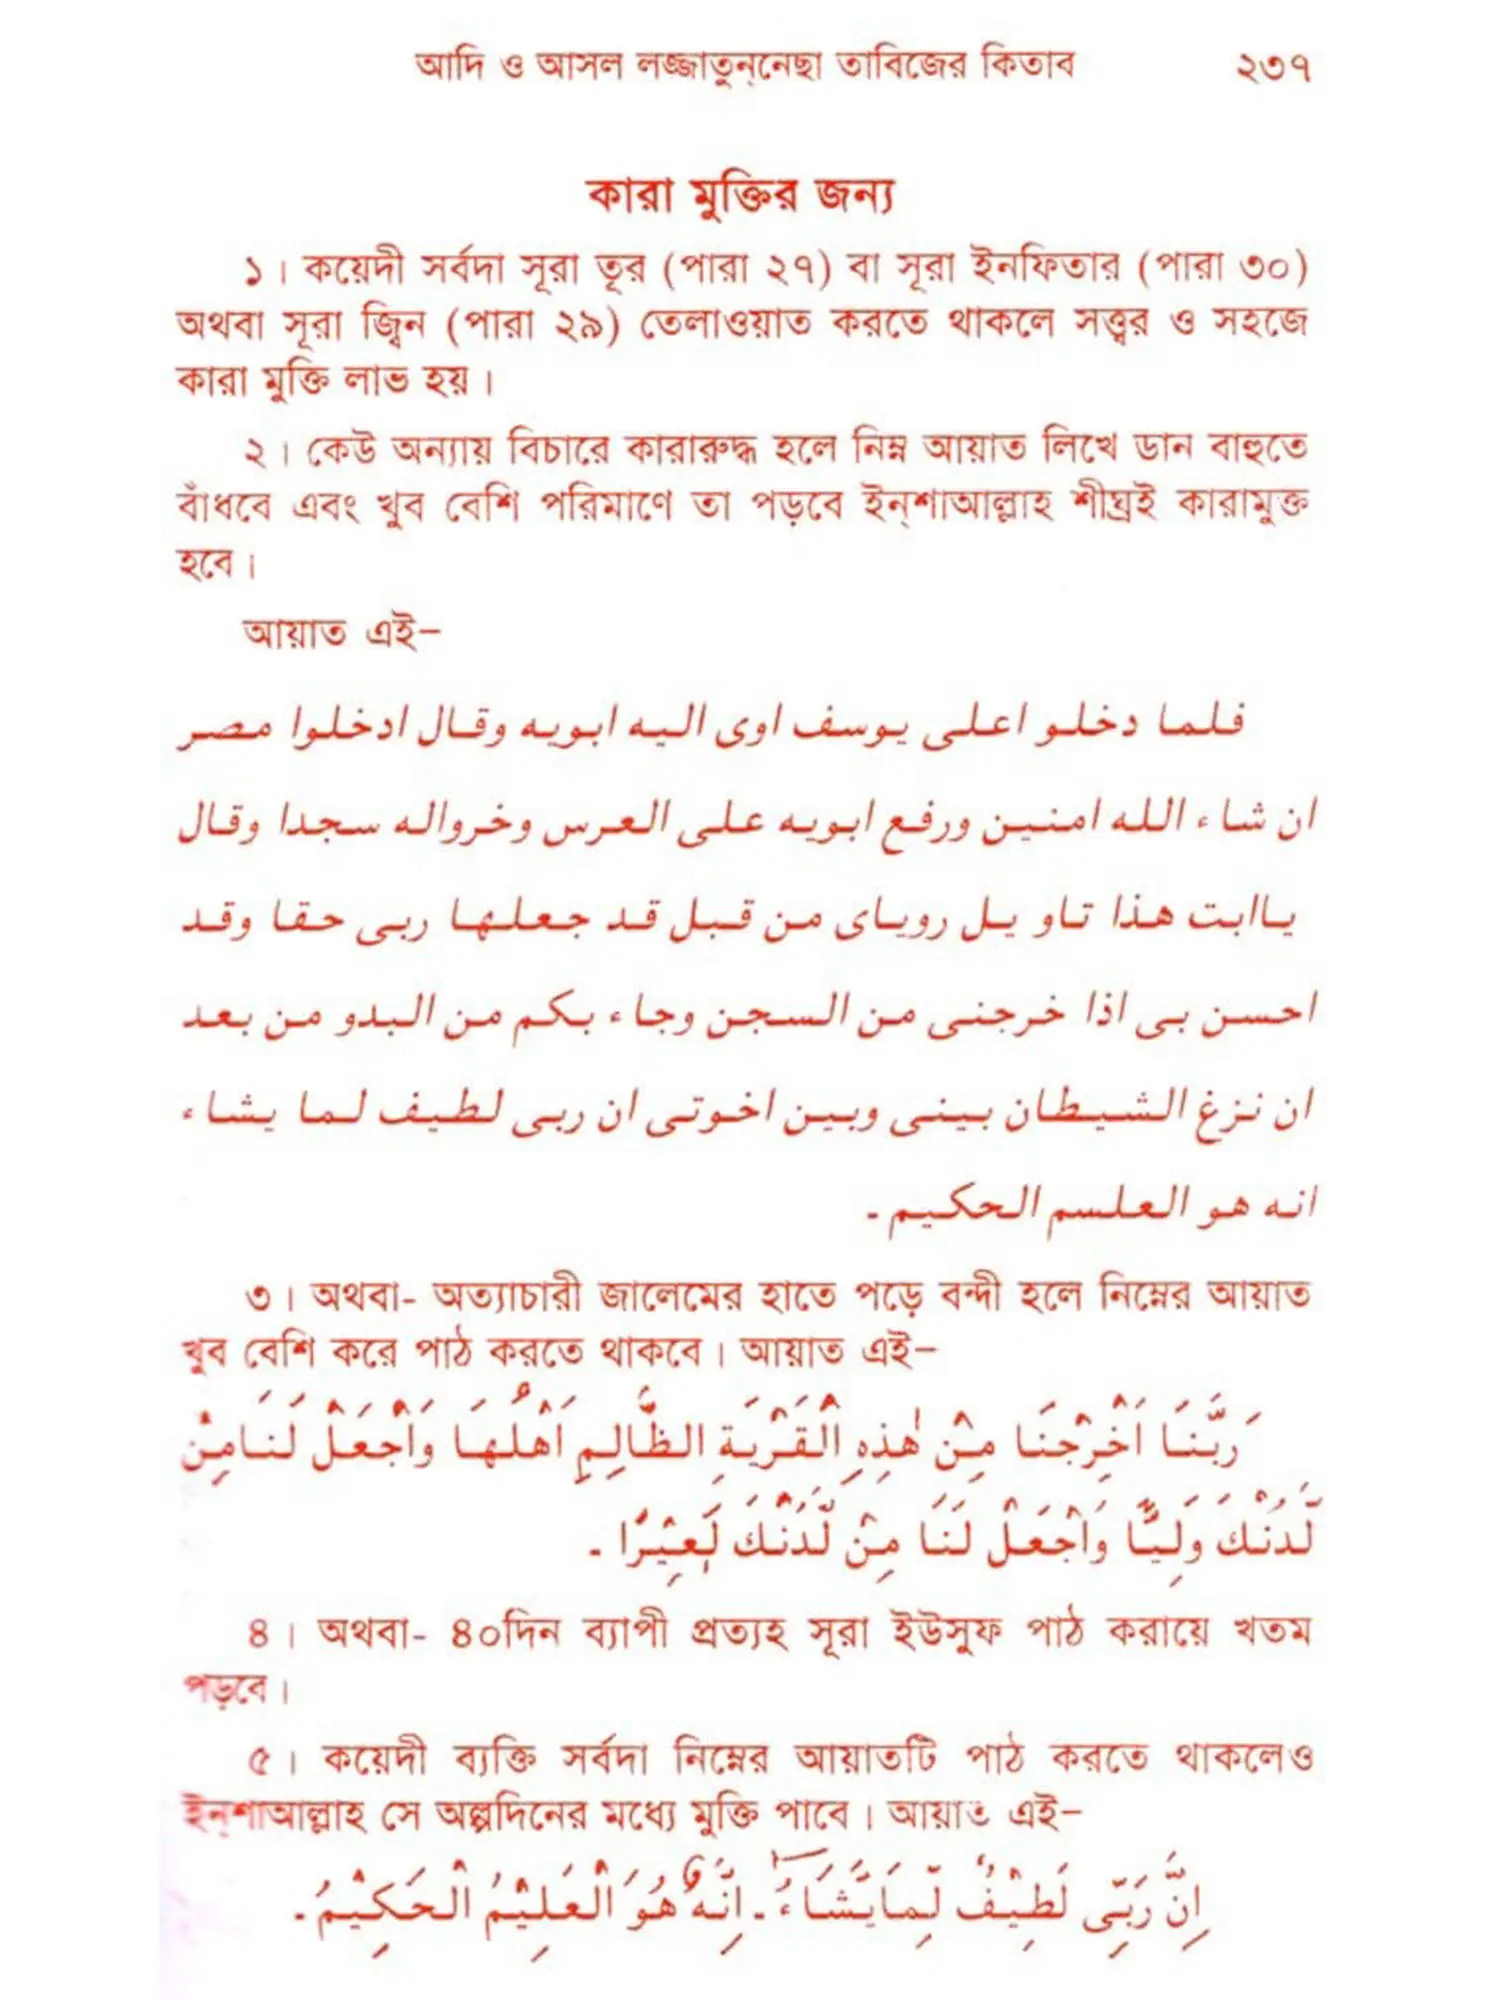 আদি ও আসল লজ্জাতুন্‌নেছা তাবিজের কিতাব ২৩৭
কারা মুক্তির জন্য
১। কয়েদী সর্বদা সূরা তূর (পারা ২৭) বা সূরা ইনফিতার (পারা ৩০)
অথবা সূরা জ্বিন (পারা ২৯) তেলাওয়াত করতে থাকলে সত্ত্বর ও সহজে
কারা মুক্তি লাভ হয়।
২। কেউ অন্যায় বিচারে কারারুদ্ধ হলে নিম্ন আয়াত লিখে ডান বাহুতে
বাঁধবে এবং খুব বেশি পরিমাণে তা পড়বে ইন্‌শাআল্লাহ শীঘ্রই কারামুক্ত
হবে।
আয়াত এই–
فلما دخلو اعلى يوسف اوى اليه ابويه وقال ادخلوا مصر
ان شاء الله امنين ورفع ابويه على العرس وخرواله سجدا وقال
ياابت هذا تاو يل روياى من قبل قد جعلها ربى حقا وقد
احسن بى اذا خرجنى من السجن وجاء بكم من البدو من بعد
ان نزغ الشيطان بينى وبين اخوتى ان ربى لطيف لما يشاء
انه هو العلسم الحكيم -
৩। অথবা- অত্যাচারী জালেমের হাতে পড়ে বন্দী হলে নিম্নের আয়াত
খুব বেশি করে পাঠ করতে থাকবে। আয়াত এই–
رَبَّنَا اَخْرِجْنَا مِنْ هٰذِهِ الْقَرْيَةِ الظَّالِمِ اَهْلُهَا وَاْجْعَلْ لَنَامِنْ
لَّدُنْكَ وَلِيًّا وَاجْعَلْ لَنَا مِنْ لَّدُنْكَ نَصِيْرًا -
৪। অথবা- ৪০দিন ব্যাপী প্রত্যহ সূরা ইউসুফ পাঠ করায়ে খতম
পড়বে।
৫। কয়েদী ব্যক্তি সর্বদা নিম্নের আয়াতটি পাঠ করতে থাকলেও
ইন্‌শাআল্লাহ সে অল্পদিনের মধ্যে মুক্তি পাবে। আয়াত এই–
اِنَّ رَبِّى لَطِيْفٌ لِّمَايَشَاءُ - اِنَّهُ هُوَ الْعَلِيْمُ الْحَكِيْمُ -